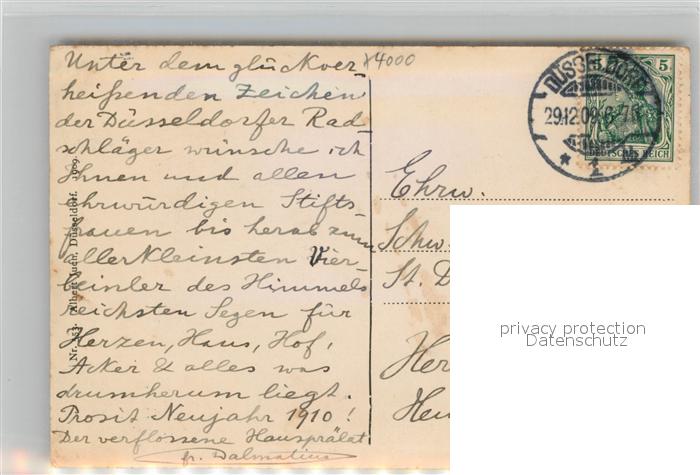 Unter dem glückver-
heißenden Zeichen
der Düsseldorfer Rad-
schläger wünsche ich
Ihnen und allen
ehrwürdigen Stifts-
frauen bis herab zum
allerkleinsten Vier-
beinler des Himmels
reichsten Segen für
Herzen, Haus, Hof,
Acker & alles was
drumherum liegt.
Prosit Neujahr 1910!
Der verflossene Hausprälat
fr. Dalmatius
Albert Düsseldorf. 1909.
x4000
DÜSSELDORF
29.12.09.6-7
*1
5
DEUTSCHES REICH
Ehrw.
Schw.
St. D
Her
privacy protection
Datenschutz